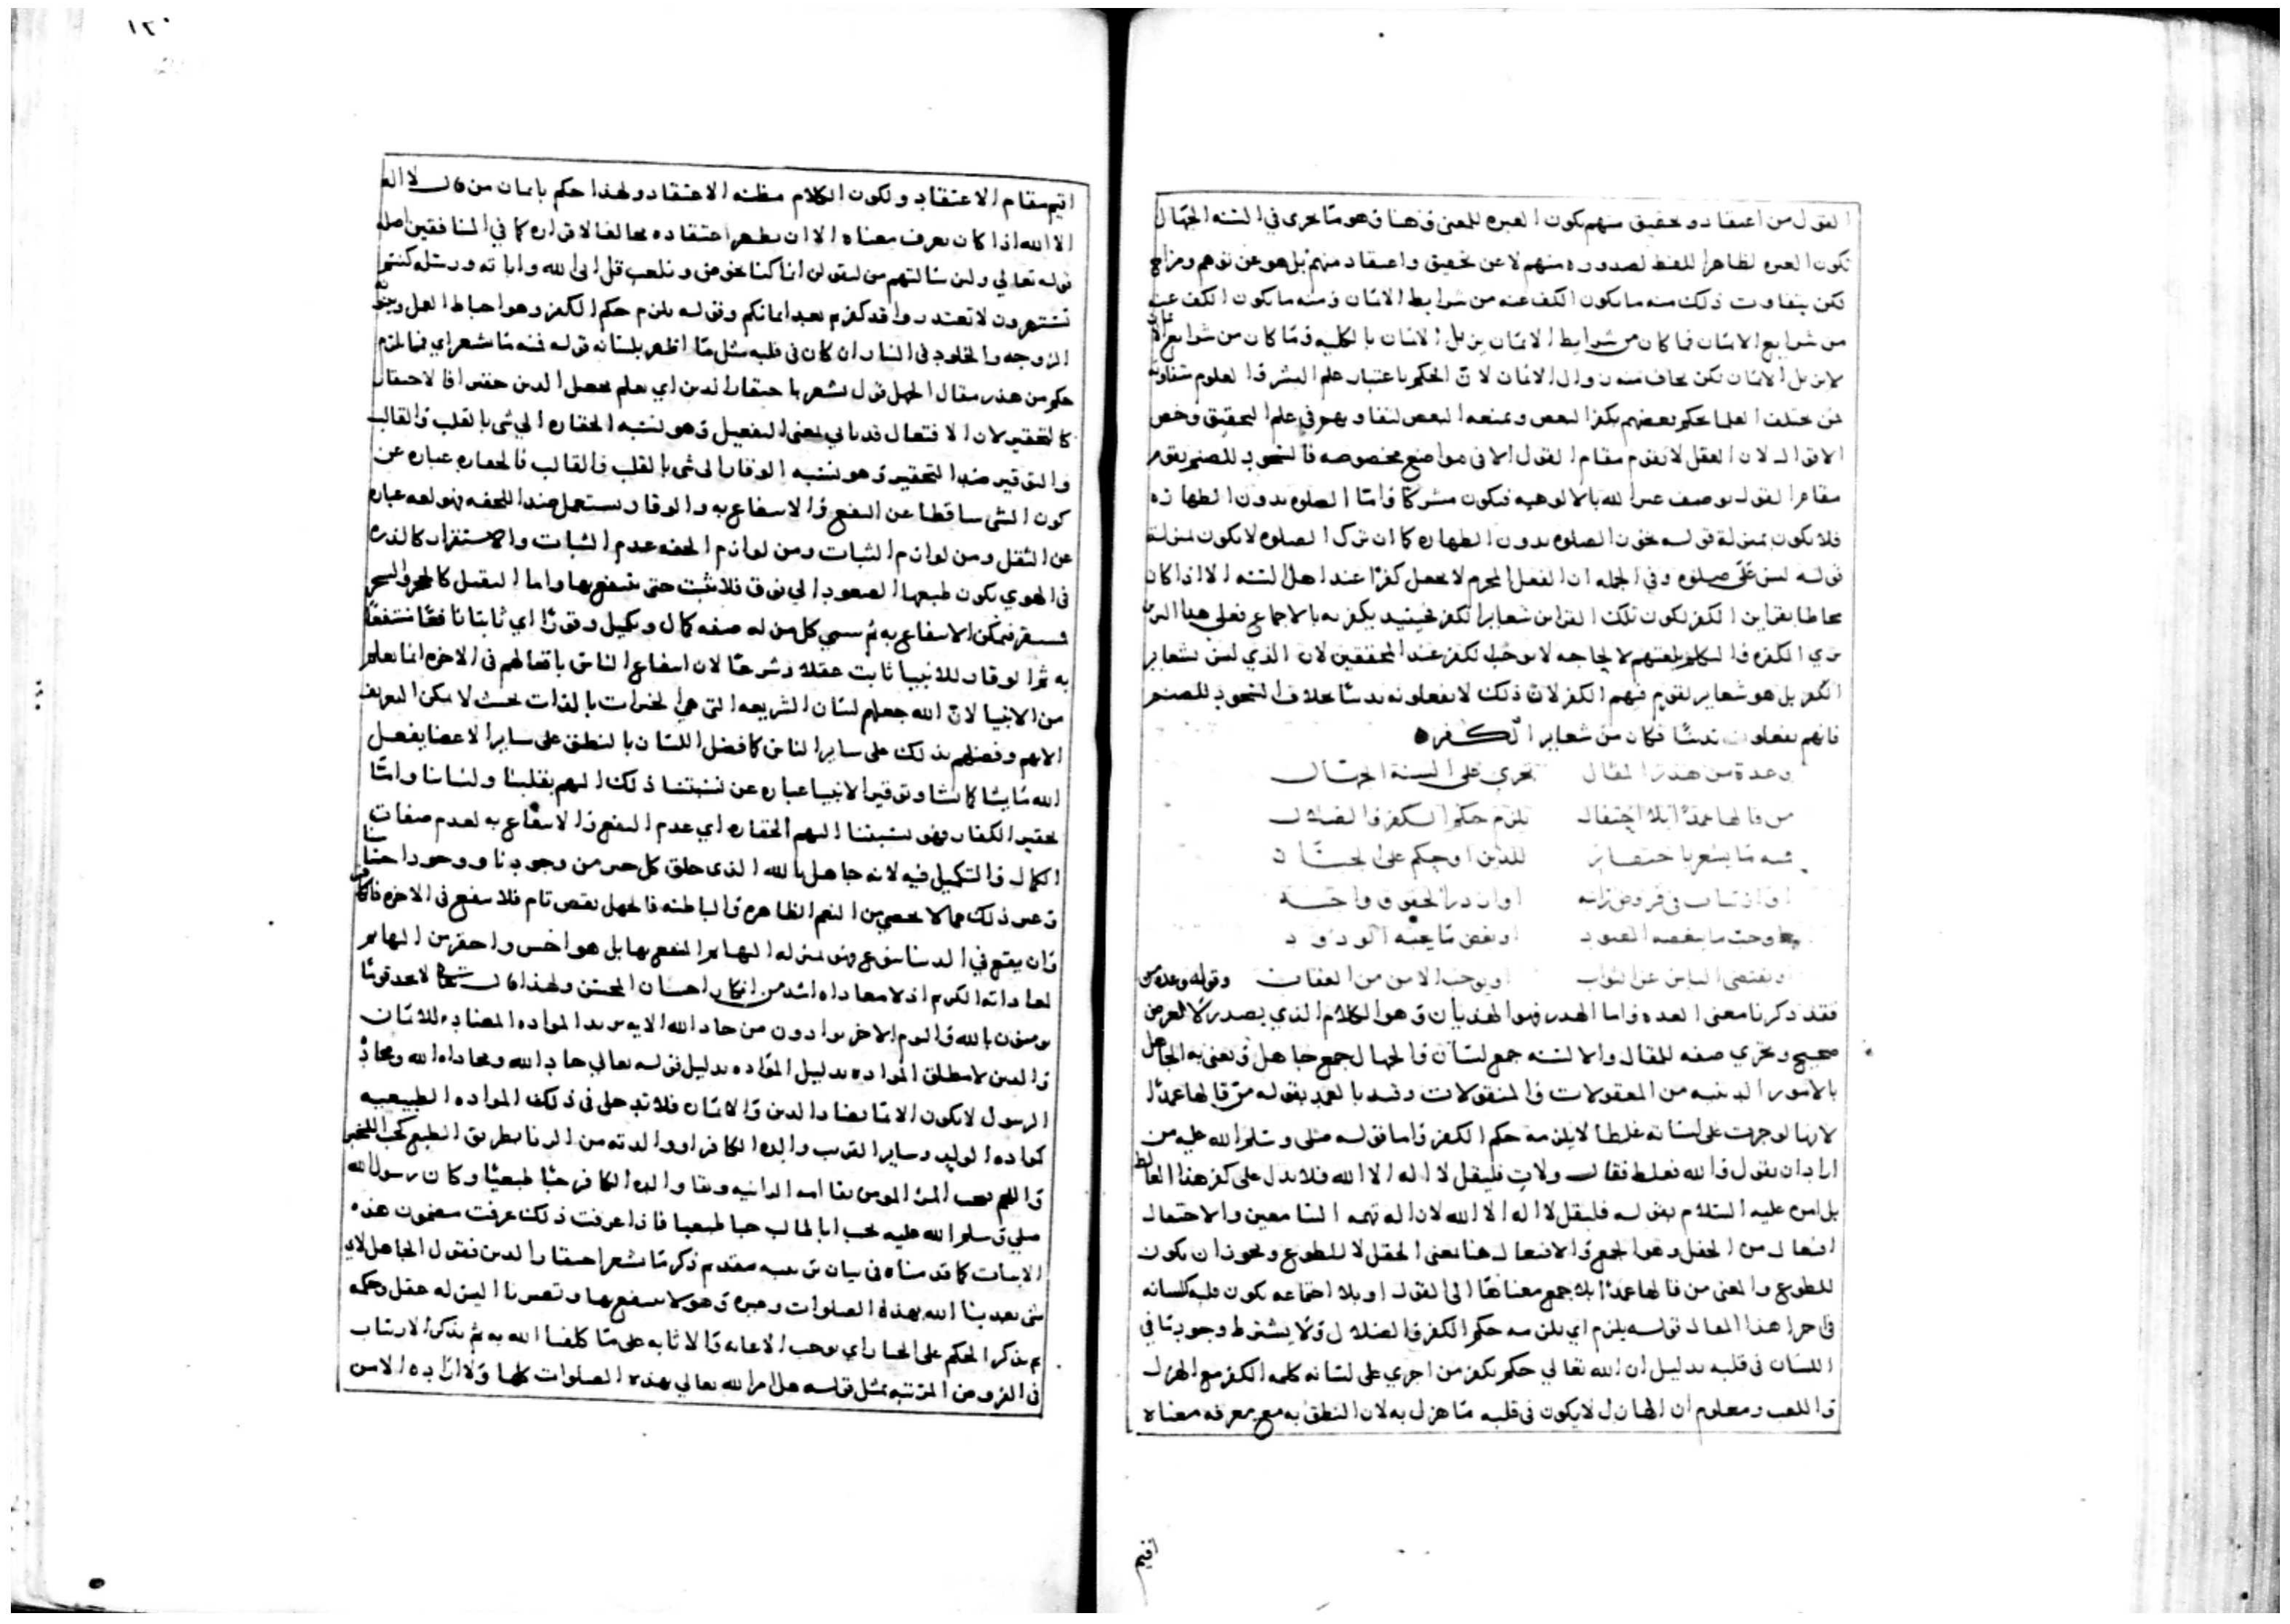 القول من اعتقاد وتحقيق منهم يكون العبره للمعنى وهنا وهو ما يجرى في السنه الجهال
تكون العبره لظاهر اللفظ لصدوره منهم لا عن تحقيق واعتقاد منهم بل هو عن توهم ومزاح
لكن يتفاوت ذلك منه ما يكون الكف عنه من شرايط الايمان ومنه ما يكون الكف عنه
من شرايع الايمان فما كان من شرايط الايمان يزيل الايمان بالكليه وما كان من شرايع الايمان
لا يزيل الايمان لكن يخاف منه زوال الايمان لان الحكم باعتبار علم البشر والعلوم متفاوته
العلما يحكم بعضهم بكفر البعض ويمنعه البعض لتفاوتهم في علم التحقيق وخص
الاقوال لان الفعل لا يقوم مقام القول الا في مواضع مخصوصه فالسجود للصنم يقوم
مقام القول بوصف غير الله بالالوهيه فيكون مشركا واما الصلوه بدون الطهاره
فلا يكون بمنزلة قوله تجوز الصلوه بدون الطهاره كما ان ترك الصلوه لا يكون بمنزلة
قوله ليس علي صلوه وفي الجمله ان الفعل المحرم لا يجعل كفرا عند اهل السنه الا اذا كان
محاطا بقراين الكفر لكون تلك القراين شعاير الكفر فحينيذ يكفر به بالاجماع فعلى هذا التزيي
بزي الكفره والتكلم بلغتهم لا لحاجه لا يوجب الكفر عند المحققين لان الذي ليس بشعاير
الكفر بل هو شعاير لقوم فيهم الكفر لان ذلك لا يفعلونه تدينا بخلاف السجود للصنم
فانهم يفعلون تدينا فكان من شعاير الكفره
وعدة من هذر المقال تجري على السنة الجهال
من قالها عمدا بلا احتفال يلزم حكم الكفر والضلال
منه ما يشعر باحتقار للدين او يحكم على الجبار
او ارتياب في فروض راتبه او ازدراء لحقوق واجبه
او حب ما يبغضه المعبود او بغض ما يحبه الودود
او يقتضى الياس عن الثواب او يوجب الامن من العقاب وقوله وعدة من
فقد ذكرنا معنى العده واما الهدر فهو الهذيان وهو الكلام الذي يصدر لا لغرض
صحيح وتجري صفه للمقال والالسنه جمع لسان والجهال جمع جاهل ونعنى به الجاهل
بالامور الدينيه من المعقولات والمنقولات وقيد بالعمد بقوله من قالها عمدا
لانها لو جرت على لسانه غلطا لا يلزمه حكم الكفر واما قوله صلى وسلم الله عليه من
اراد ان يقول والله فغلط فقال ولات فليقل لا اله الا الله فلا يدل على كفر هذا الغالط
بل امره عليه السلام بقوله فليقل لا اله الا الله لازاله تهمه السامعين والاحتفال
افتعال من الحفل وهو الجمع والافتعال هنا بمعنى الحفل لا للطوع ويجوز ان يكون
للطوع والمعنى من قالها عمدا بلا جمع معناها الى القول او بلا اجتماعه يكون قلبه كلسانه
في اجرا هذا المقال قوله يلزم اي يلزمه حكم الكفر والضلال ولا يشترط وجود ما في
اللسان في قلبه بدليل ان الله تعالي حكم بكفر من اجري على لسانه كلمه الكفر مع الهزل
واللعب ومعلوم ان الهازل لا يكون في قلبه ما هزل به لان النطق به مع معرفه معناه
اقيم
١٢٠
اقيم مقام الاعتقاد ولكون الكلام مظنه الاعتقاد ولهذا حكم بايمان من قال لا اله
الا الله اذا كان يعرف معناه الا ان يظهر اعتقاده مخالفا لاقراره كما في المنافقين اصله
قوله تعالي ولين سالتهم من ليقولن انما كنا نخوض ونلعب قل ابالله واياته ورسله كنتم
تستهزون لا تعتذروا قد كفرتم بعد ايمانكم وقوله يلزم حكم الكفر وهو احباط العمل وبينونه
الزوجه والخلود في النار ان كان في قلبه مثل ما اظهر بلسانه قوله فمنه ما يشعر اي فما يلزم
حكم من هذر مقال الجهل قول يشعر باحتقار الدين اي يعلم بحصل الدين حقيرا فالاحتقار
كالتحقير لان الافتعال قد ياتي لمعنى التفعيل وهو نسبه الحقاره الي شى بالقلب والقالب
والتوقير ضد التحقير وهو نسبه الوقار الى شى بالقلب والقالب فالحقاره عباره عن
كون الشى ساقطا عن النفع والانتفاع به والوقار يستعمل ضد اللخفه فهو لغه عباره
عن الثقل ومن لوازم الثبات ومن لوازم الخفه عدم الثبات والاستقرار كالذره
في الهوي يكون طبعها الصعود الي فوق فلا تثبت حتى ينتفع بها واما الثقيل كالحجر والشجر
مستقر فيمكن الانتفاع به ثم سمي كل من له صفه كمال وتكميل وقورا اي ثابتا نافعا منتفعا
به ثم الوقار للانبيا ثابت عقلا وشرعا لان انتفاع الناس بافعالهم في الاخره انما يعلم
من الانبيا لان الله جعلهم لسان الشريعه التي هي الخيرات بالذات بحيث لا يمكن التعريف
الا بهم وفضلهم بذلك على ساير الناس كما فضل اللسان بالنطق على ساير الاعضا يفعل
الله ما يشا كما يشا وتوقير الانبيا عباره عن نسبتنا ذلك اليهم بقلبنا ولساننا واما
تحقير الكفار فهو نسبتنا اليهم الحقاره اي عدم النفع والانتفاع به لعدم صفات
الكمال والتكميل فيه لانه جاهل بالله الذى خلق كل خير من وجودنا ووجود احبابنا
وغير ذلك مما لا يحصي من النعم الظاهره والباطنه فالجهل نقص تام فلا ينفع في الاخره فالكافر
وان يقع في الدنيا نفع فهو بمنزله البهايم المنتفع بها بل هو اخس واحقر من البهايم
لمعاداته الكريم اذ لا معاداه اشد من انكار احسان المحسن ولهذا قال تعالى لا تجد قوما
يومنون بالله واليوم الاخر يوادون من حاد الله الايه يريد الموادّه المضاده للايمان
والدين لا مطلق الموّاده بدليل الموّاده بدليل قوله تعالي حاد الله ومحاداه الله ومحاد
الرسول لا يكون الا ما يضاد الدين والايمان فلا تدخل في ذلك الموّاده الطبيعيه
كموّاده الوليد وساير القريب والده الكافر او والدته من الزنا بطريق الطبع كحب اللخبز
واللحم يحب المرء المومن بقا امه الزانيه وبقا والده الكافر حبا طبيعيا وكان رسول الله
صلي وسلم الله عليه يحب ابا طالب حبا طبيعيا فاذا عرفت ذلك عرفت مضمون هذه
الابيات كما قدمناه في بيان ترتيبه مقدم ذكر ما يشعر احتقار الدين فقول الجاهل لاي
شى تعبدنا الله بهذه الصلوات وغيره وهو لا ينتفع بها وتضرنا اليس له عقل وحكمه
ثم يذكر الحكم على الجبار اي يوجب الاعانه والاثابه على ما كلفنا الله به ثم يذكر الارتياب
في الفروض المرتبه بمثل قوله هل امر الله تعالي بهذه الصلوات كلها ولا اراده الامن